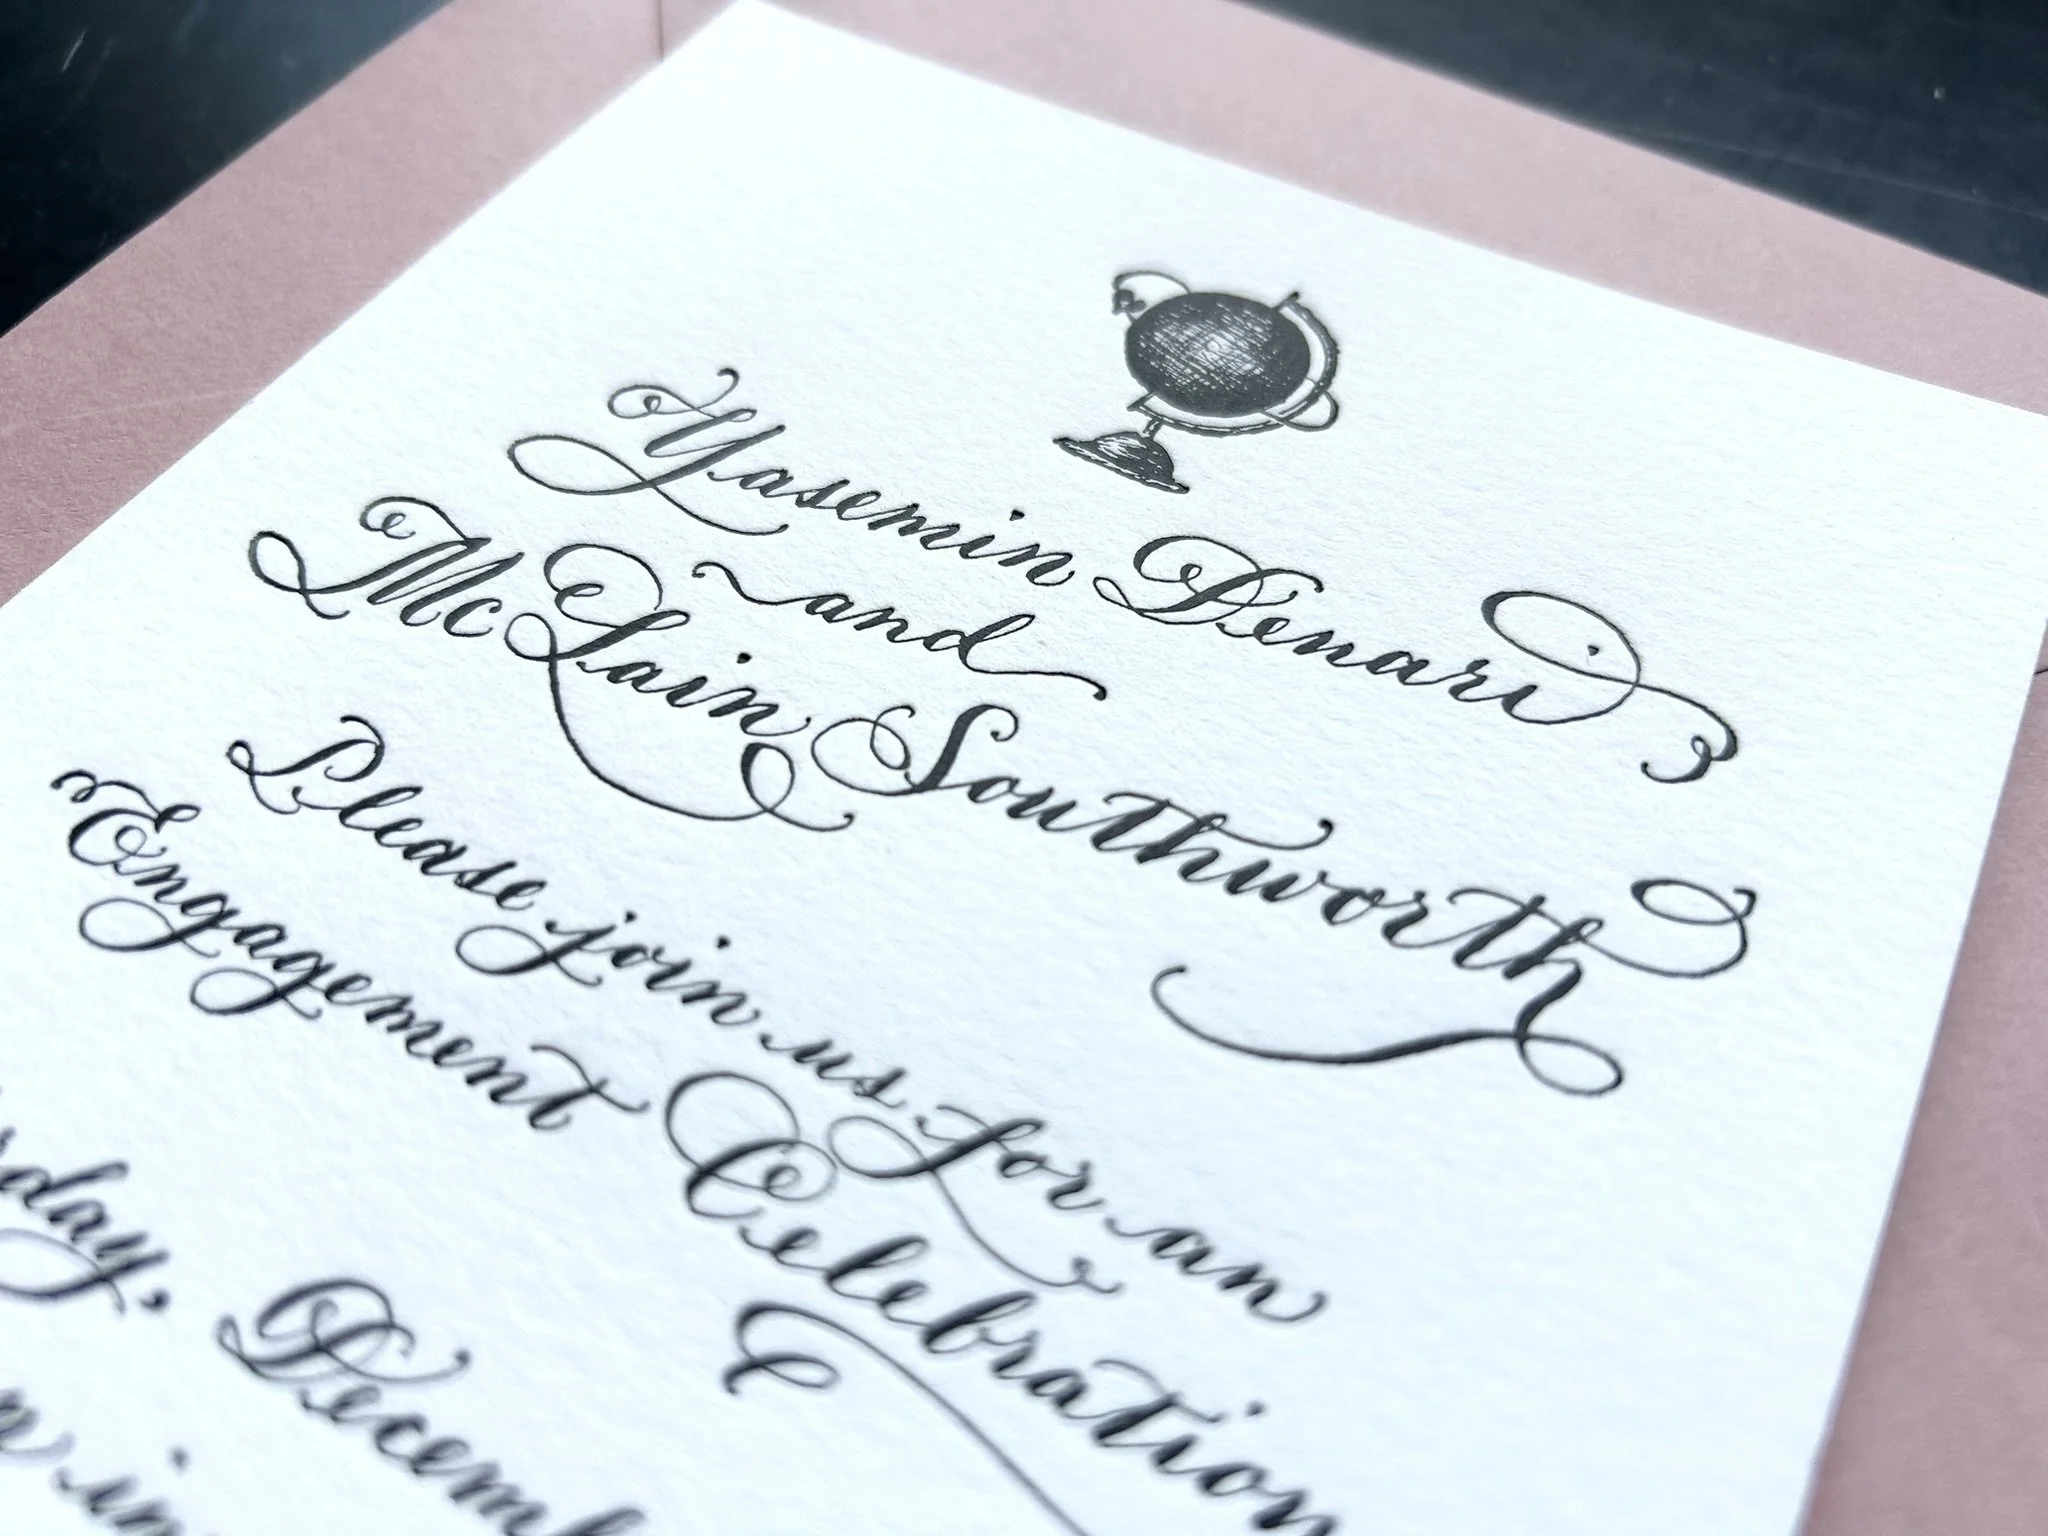 Yasemin Denari
and
McLain Southworth
Please join us for an
Engagement Celebration